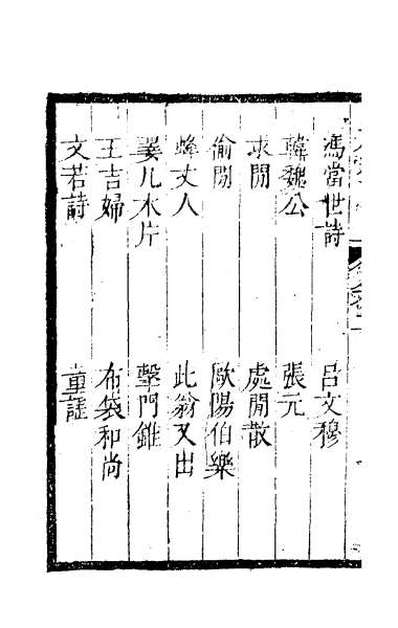 馮當世詩　呂文穆
韓魏公　張元
求閒　處閒散
偷閒　歐陽伯樂
蜂丈人　此翁又出
儿木片　擊門錐
王吉婦　布袋和尚
文若詩　童謠